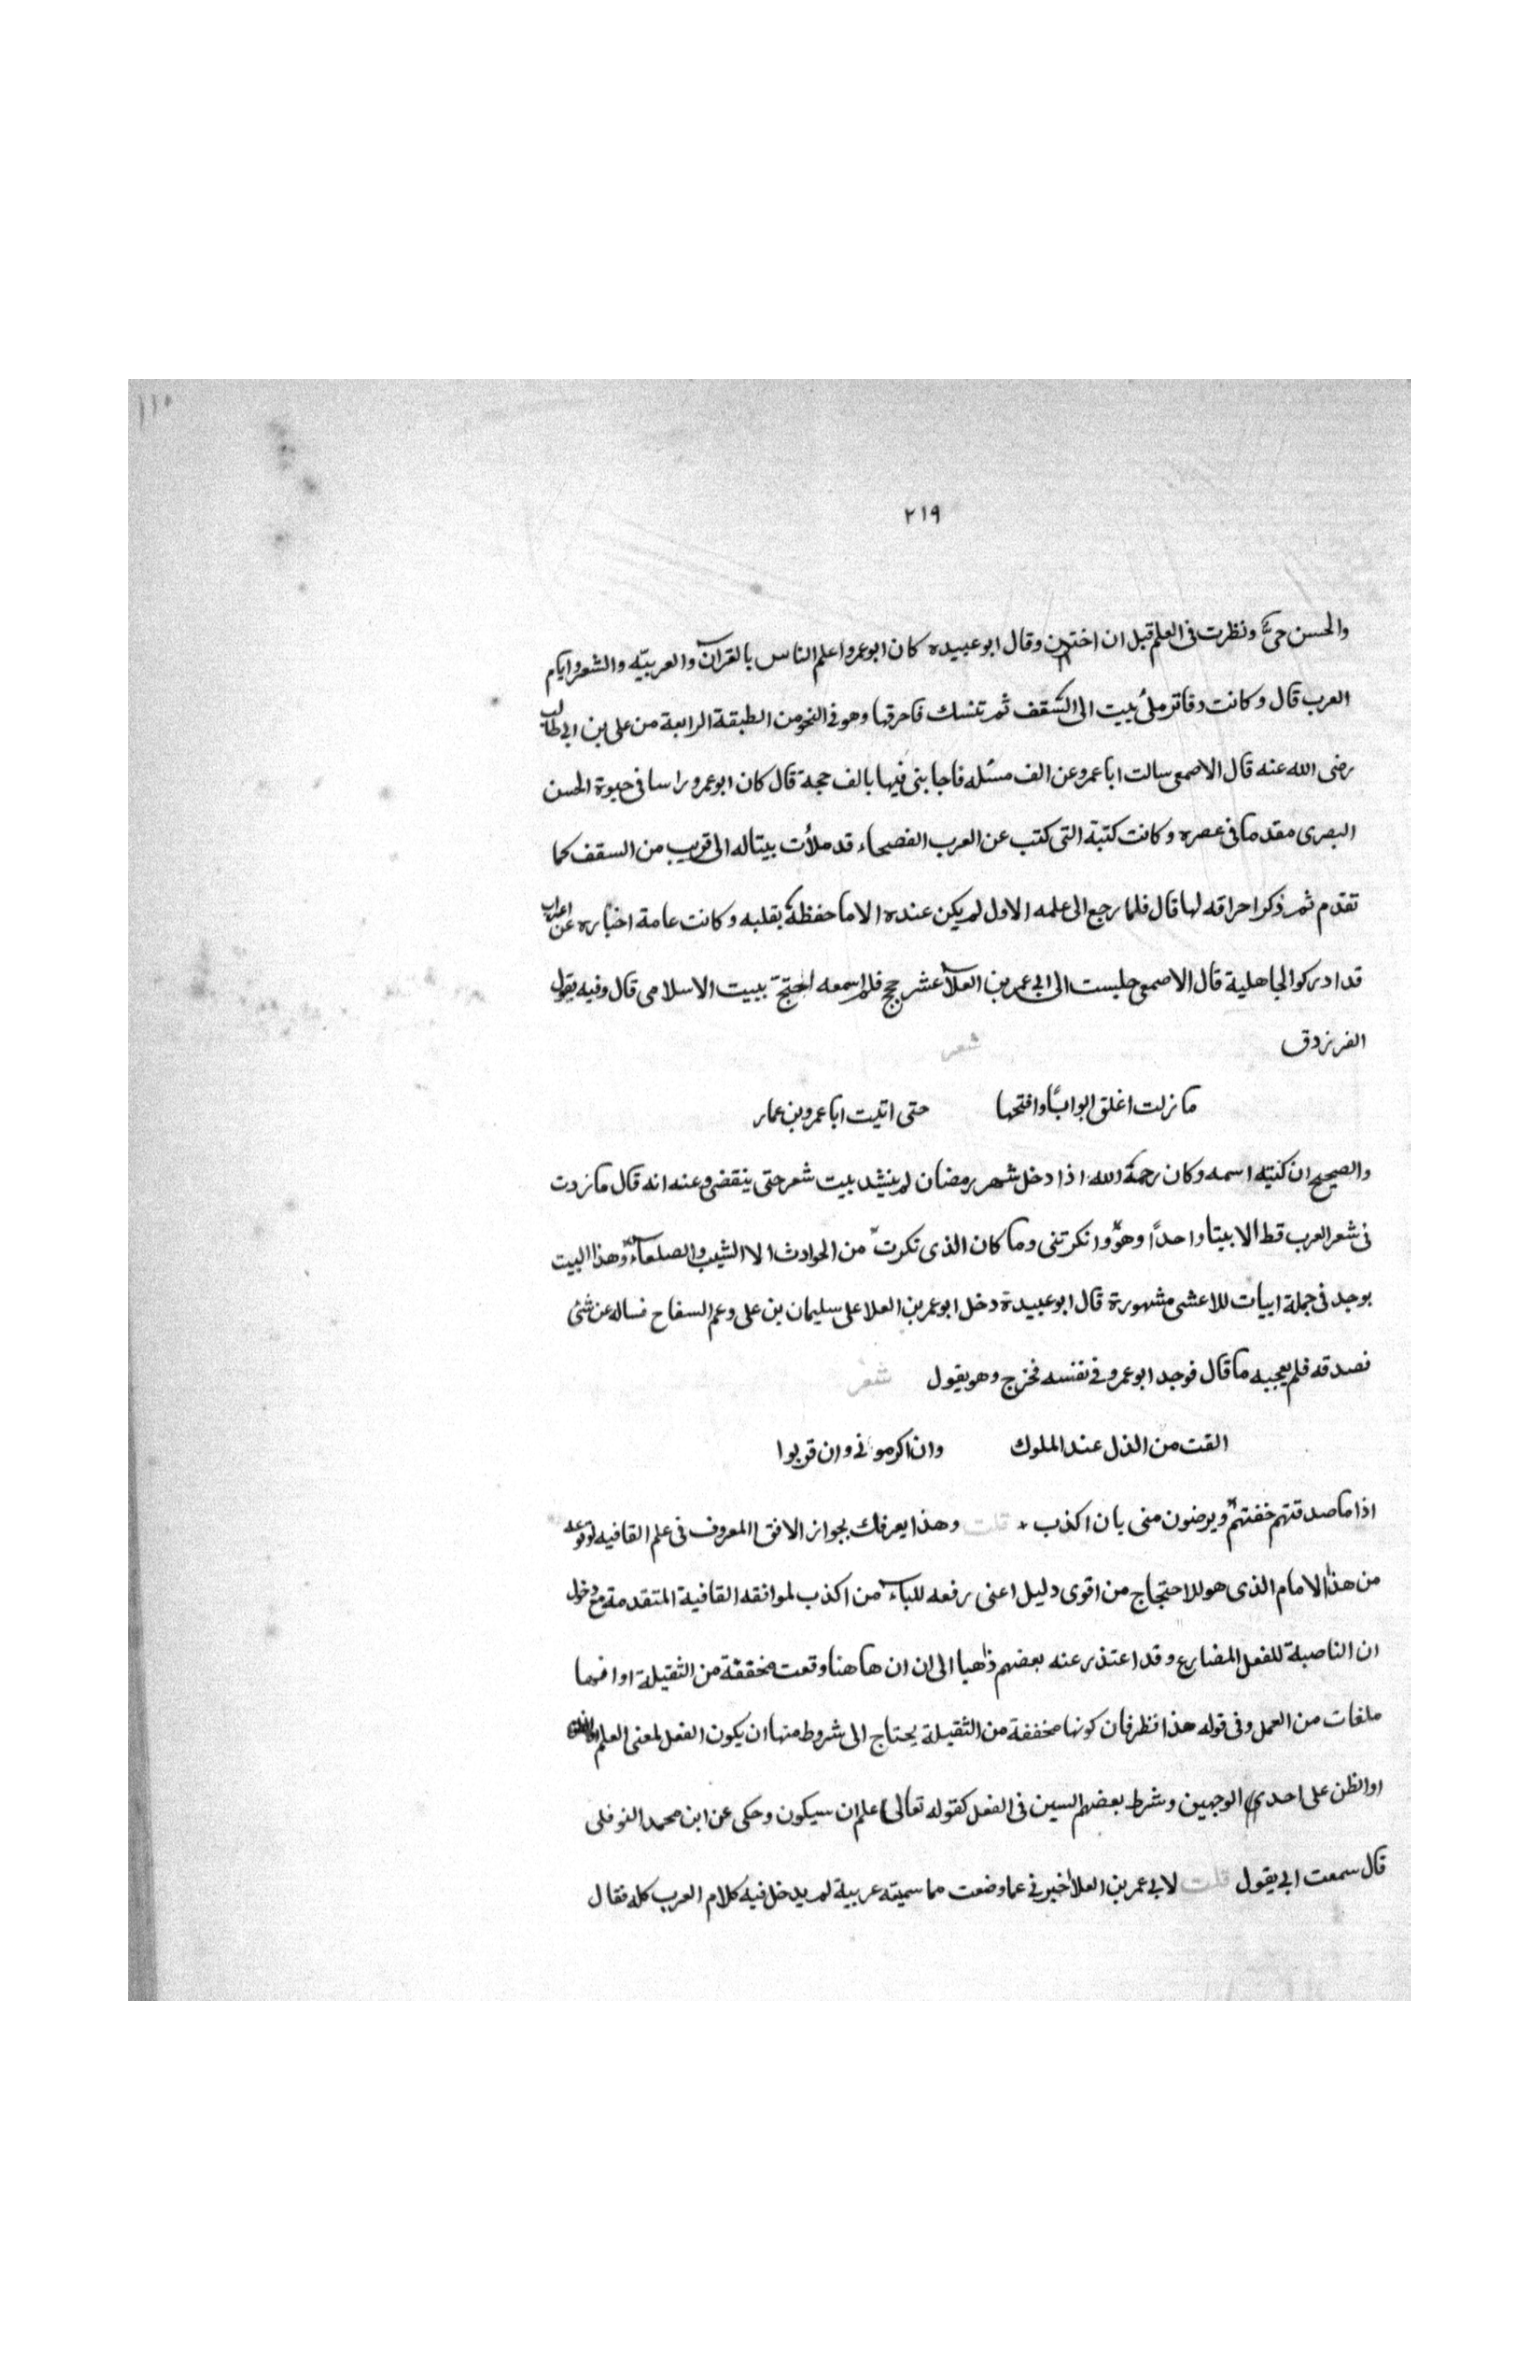 ١١٠
٢١٩
والحسن حيّ ونظرت في العلم قبل ان اختتن وقال ابو عبيده كان ابو عمرو اعلم الناس بالقرآن والعربيّه والشعر وايام
العرب قال وكانت دفاتر ملئ بيت الى السّقف ثم تنسك فاحرقها وهو في النحو من الطبقة الرابعة من علي بن ابي طالب
رضى الله عنه قال الاصمعي سالت ابا عمرو عن الف مسئله فاجابني فيها بالف حجة قال كان ابو عمرو راسا في حيوة الحسن
البصرى مقدما في عصره وكانت كتبة التي كتب عن العرب الفصحاء قد ملأت بيتا له الى قريب من السقف كما
تقدم ثم ذكر احراقه لها قال فلما رجع الى علمه الاول لم يكن عنده الا ما حفظه بقلبه وكانت عامة اخباره عن اعراب
قد ادركو الجاهلية قال الاصمعي جلست الى ابي عمر بن العلآ عشر حجج فلم اسمعه احتج ببيت الاسلامى قال وفيه يقول
الفرزدق شعر
ما زلت اغلق ابوابًا وافتحها حتى اتيت ابا عمرو بن عمار
والصحيح ان كنيته اسمه وكان رحمة الله اذا دخل شهر رمضان لم ينشد بيت شعر حتى ينقضى وعنه انه قال ما زدت
في شعر العرب قط الا بيتا واحدًا وهو وانكرتني وما كان الذى نكرت من الحوادث الا الشيب والصلعاء وهذا البيت
يوجد في جملة ابيات للاعشى مشهورة قال ابو عبيدة دخل ابو عمر بن العلا على سليمان بن على وعم السفاح فساله عن شئ
فصدقه فلم يعجبه ما قال فوجد ابو عمرو في نفسه فخرج وهو يقول شعر
القت من الذل عند الملوك وان اكرموني وان قربوا
اذا ما صدقتهم خفتهم ويرضون منى بان اكذب قلت وهذا يعرفك بجواز الافق المعروف في علم القافيه لوقوعه
من هذا الامام الذى هو للاحتجاج من اقوى دليل اعنى رفعه للباء من اكذب لموافقه القافية المتقدمة مع دخول
ان الناصبة للفعل المضارع وقد اعتذر عنه بعضهم ذاهبا الى ان ان هاهنا وقعت مخففة من الثقيلة او انها
ملغات من العمل وفي قوله هذا نظر فان كونها مخففة من الثقيلة يحتاج الى شروط منها ان يكون الفعل لمعنى العلم
او الظن على احدى الوجهين وشرط بعضهم السين في الفعل كقوله تعالى علم ان سيكون وحكى عن ابن محمد النوفلى
قال سمعت ابي يقول قلت لابي عمر بن العلا اخبرني عما وضعت مما سميته عربية لم يدخل فيه كلام العرب كله فقال